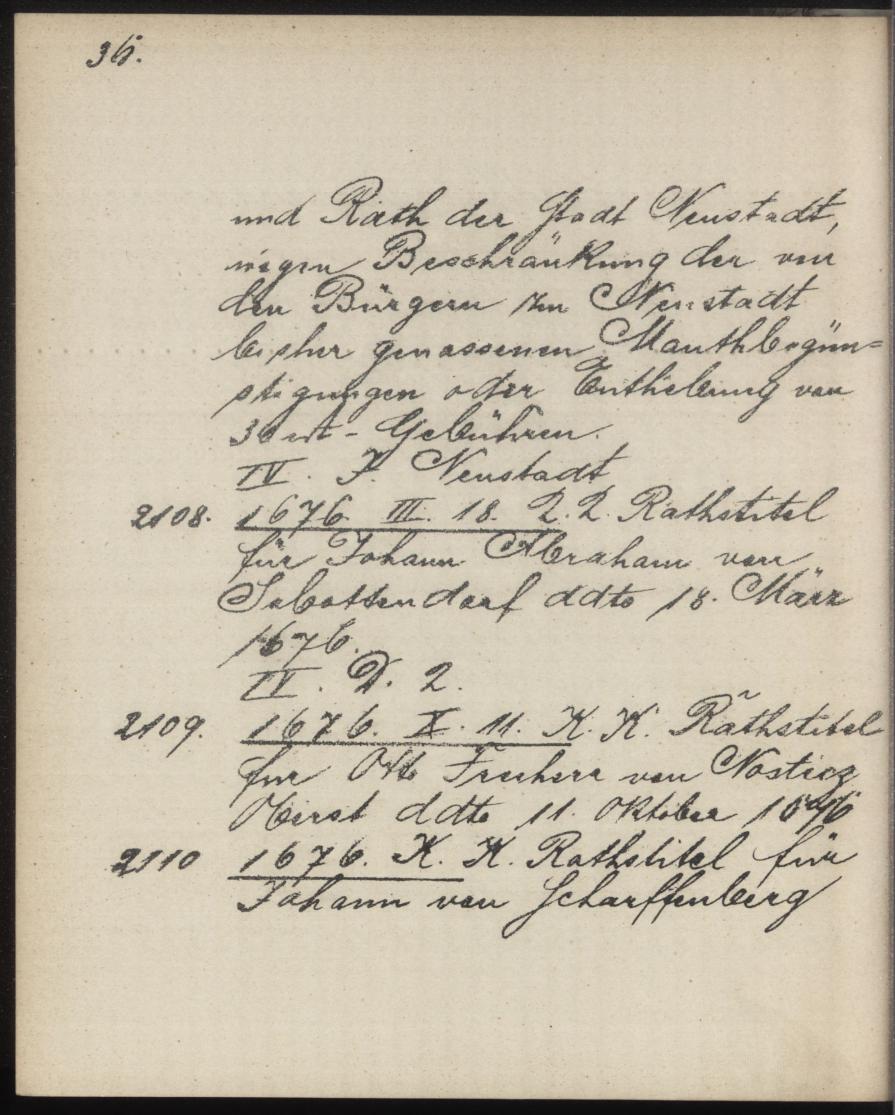 36.
und Rath der Stadt Neustadt,
wegen Beschränkung der von
den Bürgern zu Neustadt
bisher genossenen Mauthbegün=
stigungen oder Enthebung von
Gebühren.
IV. F. Neustadt
2108. 1676. III. 18. R. R. Rathstitel
für Johann Abraham von
Sebottendorf ddto 18. März
1676.
IV. D. 2.
2109. 1676. X. 11. K. K. Rathstitel
fur Otto Freiherr von Nosticz
Oberst ddto 11. Oktober 1676
2110 1676. K. K. Rathstitel für
Johann von Scharffenberg